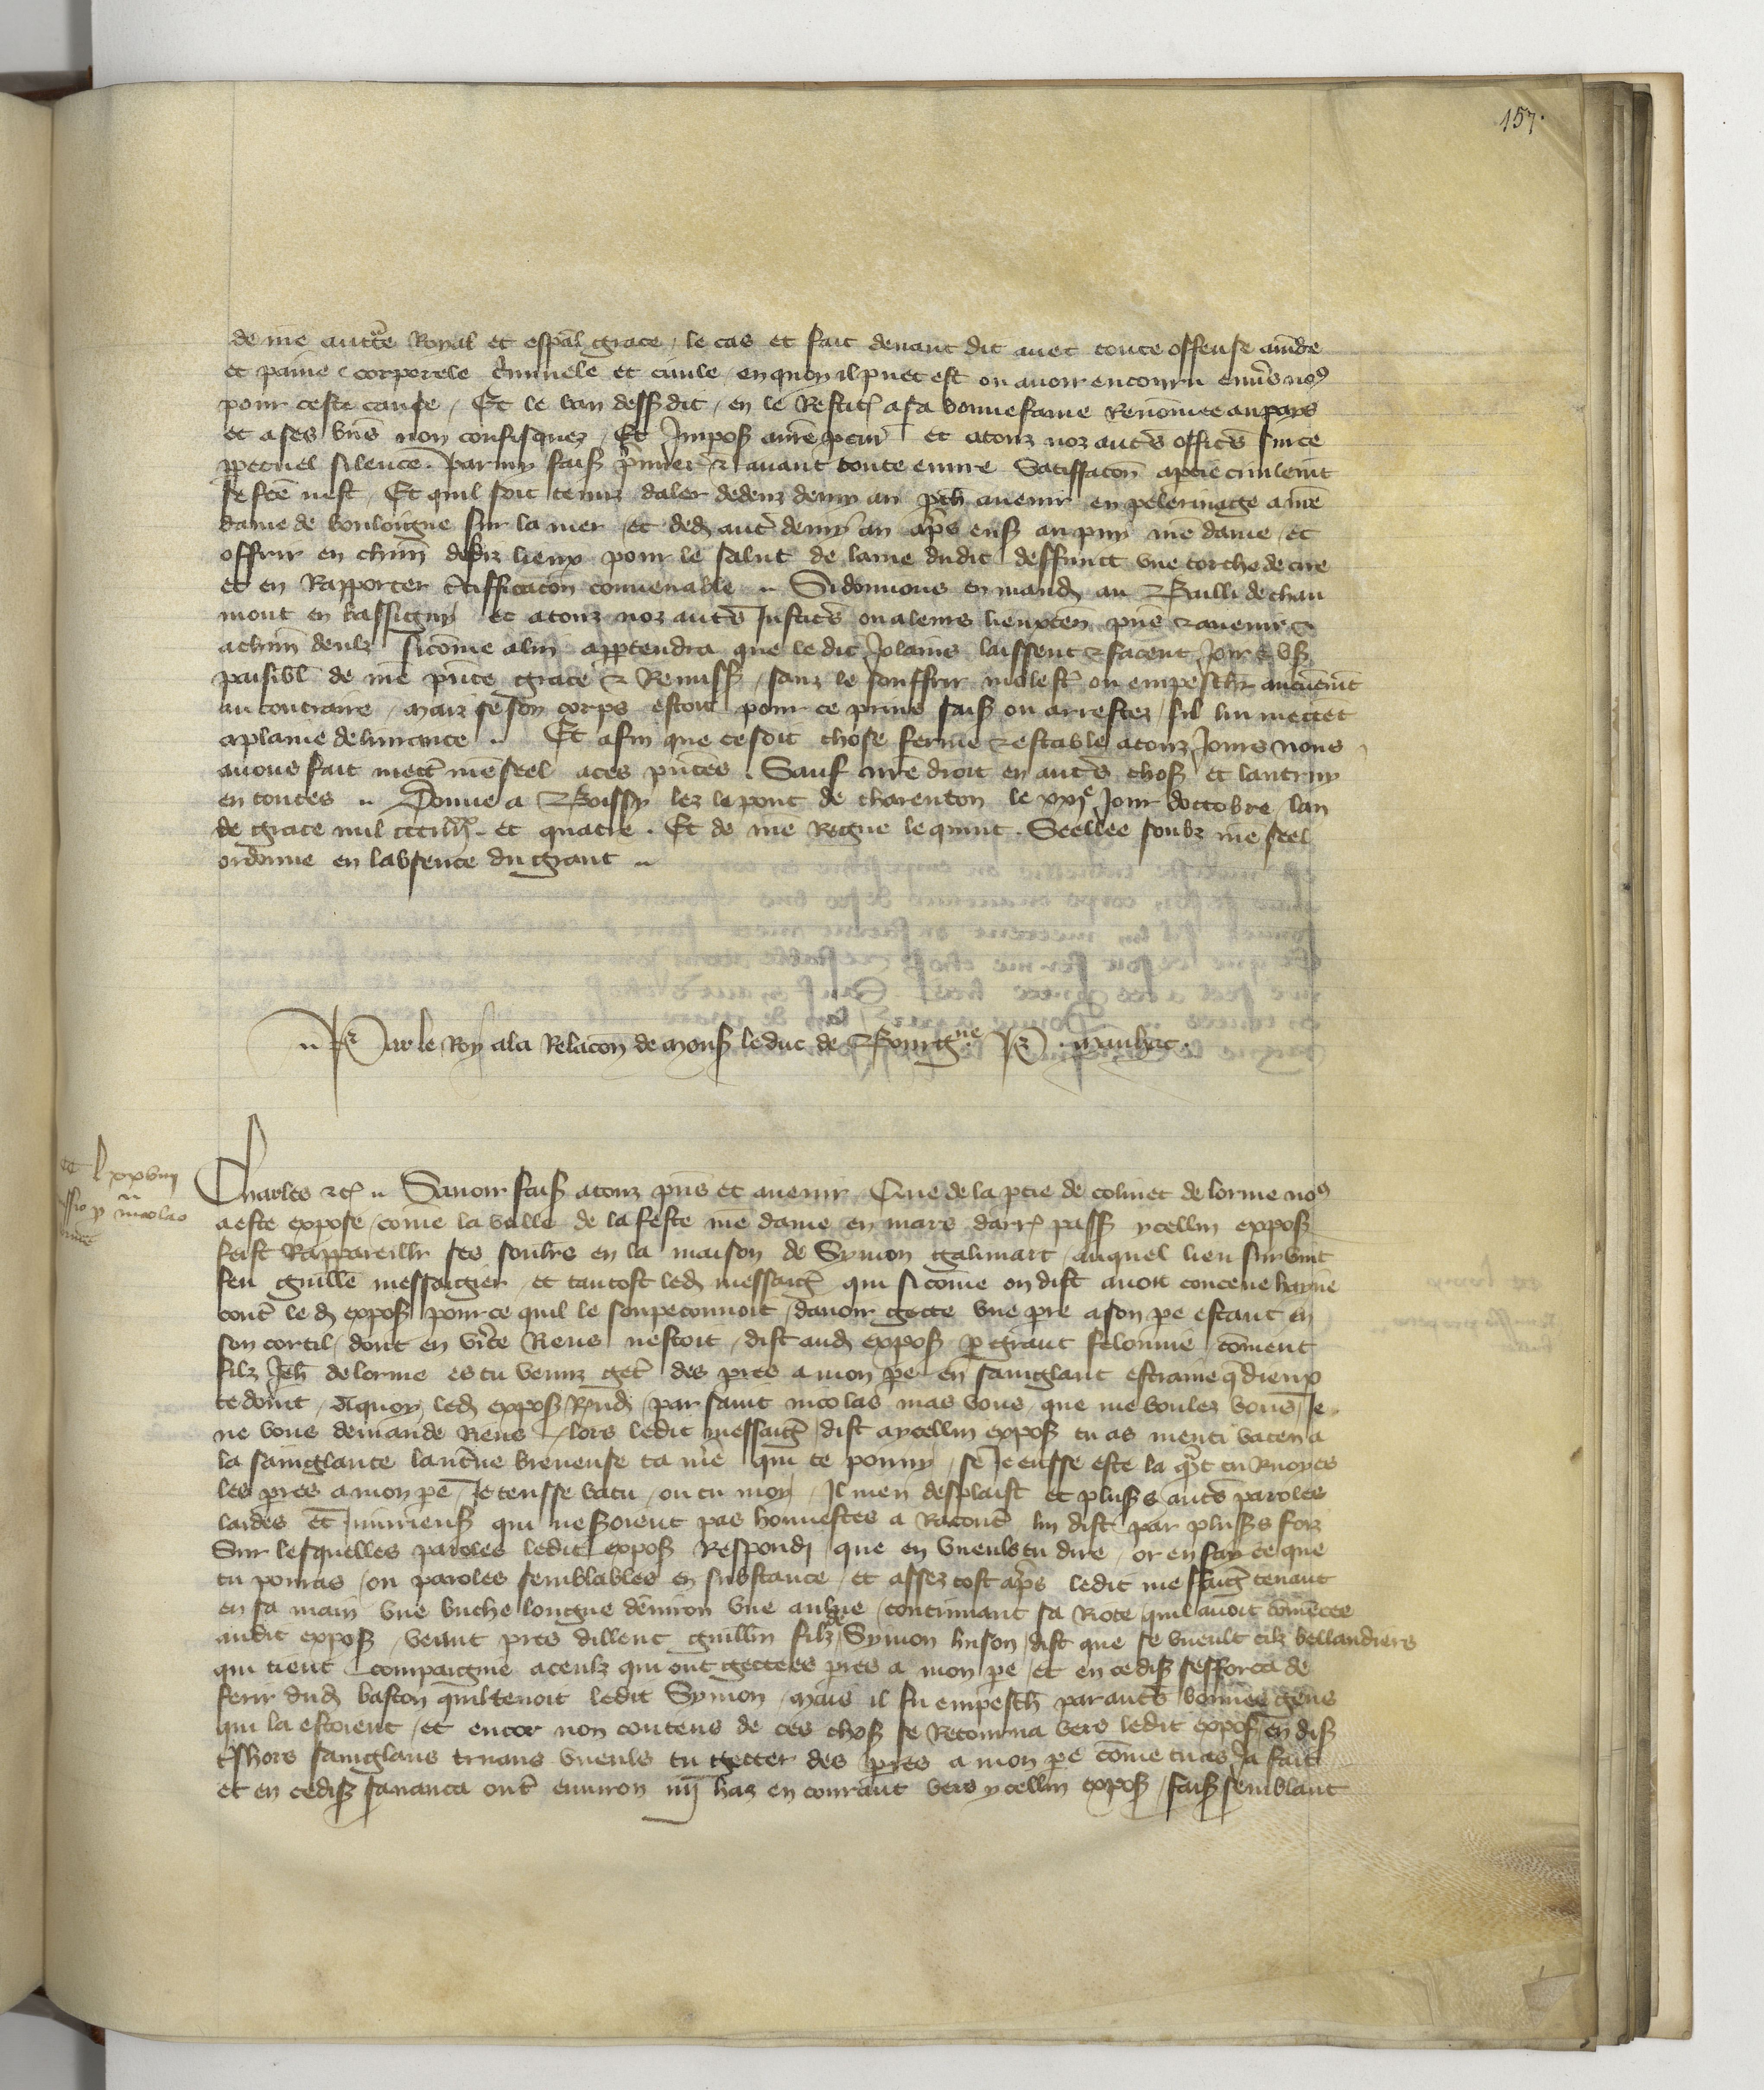 157.
de nre auctte Royal et espal grace, le cas et fait devant dit avec toute offense amde
et paine corporele criminele et civile, en quoy il puet est ou avoir encouru envers nos
pour ceste cause, Et le ban dessus dit, en le Restit a sa bonne fame Renommee au pays
et a ses biens non confisquez, Et Impos a nre procur et a touz noz autres offices sur ce
perpetuel silence. Parmy fais premier et avant toute euvre Satisfacon a partie civilemt
se fce nest, Et quil soit tenuz daler dedenz demy an proch avenir en pelerinage a nre
dame de bouloigne sur la mer, et ded autre demy an apres ens au puy nre dame, et
offrir en chun desdiz lieux pour le salut de lame dudit deffunct une torche de cire
et en Rapporter certifficacon convenable .. Si donnons en mand au Bailli de chau
mont en bassigny et a touz noz autres Justices ou a leurs lieuxten pns et avenir et
a chun deulz si comme a lui appartendra que le dit Jolains laissent et facent Joir et us
paisibl de nre pnte grace et Remiss, sanz le souffrir molest ou empesch aucunemt
au contraire, mais se son corps estoit pour ce prins sais ou arrestez, sil lui mettet
a plaine delivrance .. Et afin que ce soit chose ferme et estable a touz Jours nous
avons fait mett nre seel a ces pntes. Sauf nre droit en autres chos et lautruy
en toutes .. Donne a Boissy lez le pont de charenton le xxje Jour doctobre, lan
de grace mil ccciiijxx et quatre. Et de nre Regne le quint. Seellee soubz nre seel
ordonne en labsence du grant ..
.. Par le Roy a la Relacon de Mons le duc de Bourgne. P. Mauhac.
lxxxviij
nicolao
Charles etc .. Savoir fais a touz pns et avenir Que de la ptie de colinet de lorme nos
a este expose, come la veille de la feste nre dame en mars darr pass ycellui expos
feist Rappareillr ses soulers en la maison de Symon galimart, auquel lieu survint
feu guille messaigier, et tantost led messaig qui si come on dist avoit conceue hayne
cont le d expos pour ce quil le soupeconnoit, davoir gecte une pre a son pe estant en
son cortil, dont en vite Riens nestoit, dist aud expos p grant felonnie, coment
filz Jeh de lorme es tu venuz get des pres a mon pe en sainglant estraine q dieux
te doint, Aquoy led expos Rnd, par saint nicolas mas vous, que me voulez vous, Je
ne vous demande Riens, lors ledit messaig, dist a ycellui expos tu as menti va ten a
la sainglante lanterne breneuse ta mere qui te porny, se Je eusse este la qnt tu Ruoyes
les pres a mon pe, Je teusse batu, ou tu moy, Il men desplaist et plus autres paroles
laides et Iniurieus qui ne soient pas honnestes a Racont lui dist par pluss foiz
Sur lesquelles paroles ledit expos Respondi, que en vueuls tu dire, or en fay ce que
tu pourras, ou paroles semblables en substance, et assez tost apres ledit messaig tenant
en sa main une buche longue denviron une aulne, continuant sa Rote quil avoit comencee
audit expos, veant pres dillenc guillin filz de Symon huson, dist que se vueult cilz bellandiers
qui tient compaignie a ceulz qui ont gectees pres a mon pe, et en ce dis sefforca de
ferir dud baston quil tenoit ledit Symon, mais il fu empesch par autres bonnes gens
qui la estoient, et encor non contens de ces chos se Retourna vers ledit expos, en dis
tshors sainglans truans vueuls tu gecter des pres a mon pe come tu as Ja fait
et en ce dis savanca ont environ iiij haz en courant vers ycellui expos, fais semblant